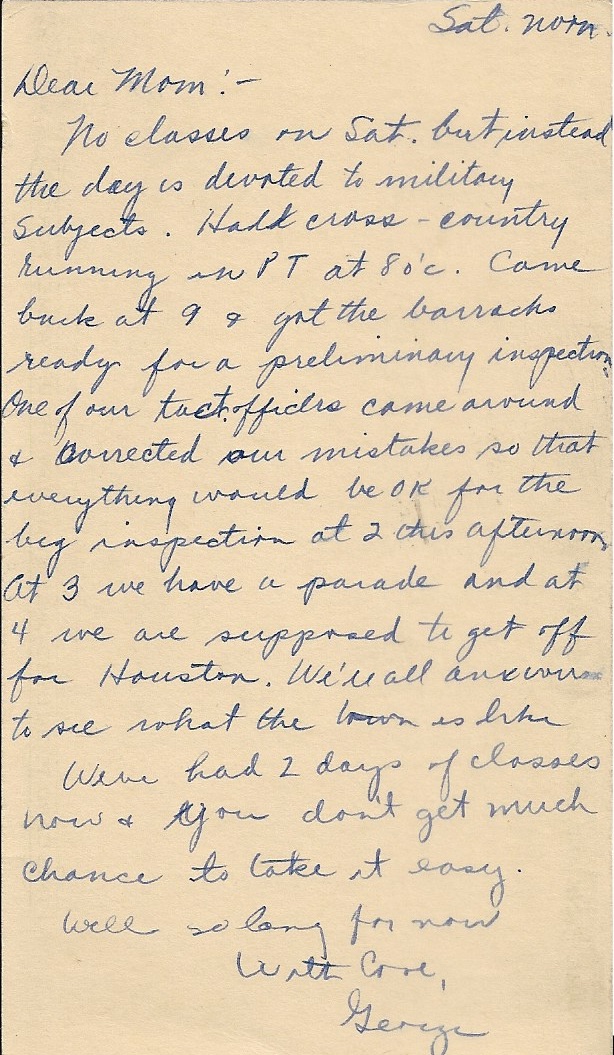 Sat. morn.
Dear Mom:-
No classes on Sat. but instead
the day is devoted to military
subjects. Hadd cross-country
running in PT at 8 o'c. Came
back at 9 & got the barracks
ready for a preliminary inspection.
One of our tact. officers came around
& corrected our mistakes so that
everything would be OK for the
big inspection at 2 this afternoon.
At 3 we have a parade and at
4 we are supposed to get off
for Houston. We're all anxious
to see what the town is like
Weve had 2 days of classes
now & you don't get much
chance to take it easy.
Well so long for now
With Love,
George